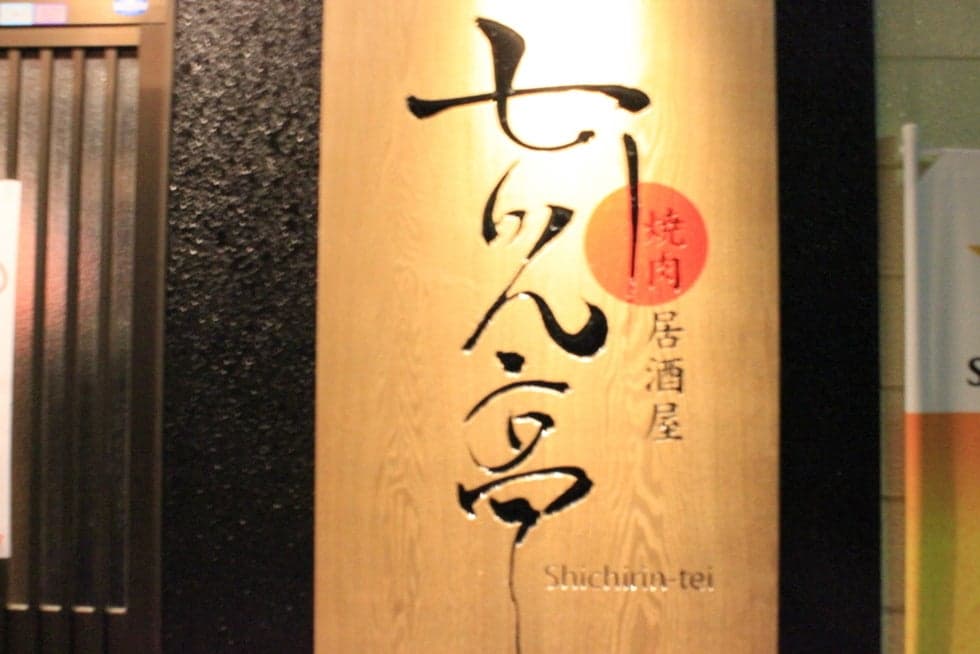 焼肉
居酒屋
七りん亭
Shichirin-tei